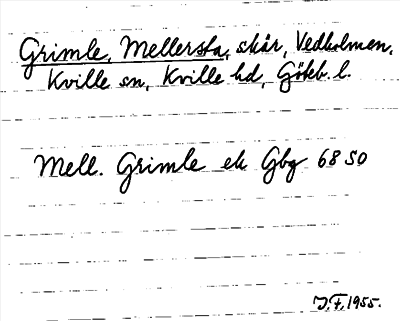 Grimle, Mellersta, skär, Vedholmen,
Kville sn, Kville hd, Göteb. l.
Mell. Grimle ek Gbg 68 SO
J.F. 1955.